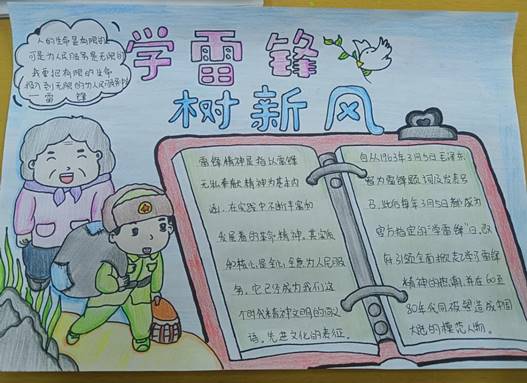 学雷锋
树新风
人的生命是有限的
可是为人民服务是无限的
我要把有限的生命
投入到无限的为人民服务中
—雷锋
雷锋精神是指以雷锋
无私奉献精神为基本内
涵，在实践中不断丰富和
发展着的革命精神，其实质
和核心是全心全意为人民服
务，它已经成为我们这
个时代精神文明的同义
语，先进文化的表征。
自从1963年3月5日毛泽东
等为雷锋题词后发表号
召，此后每年3月5日都成为
官方指定的“学雷锋”日，政
府引领全面掀起学习雷锋
精神的热潮，并在60至
80年代间被塑造成中国
大陆的模范人物。